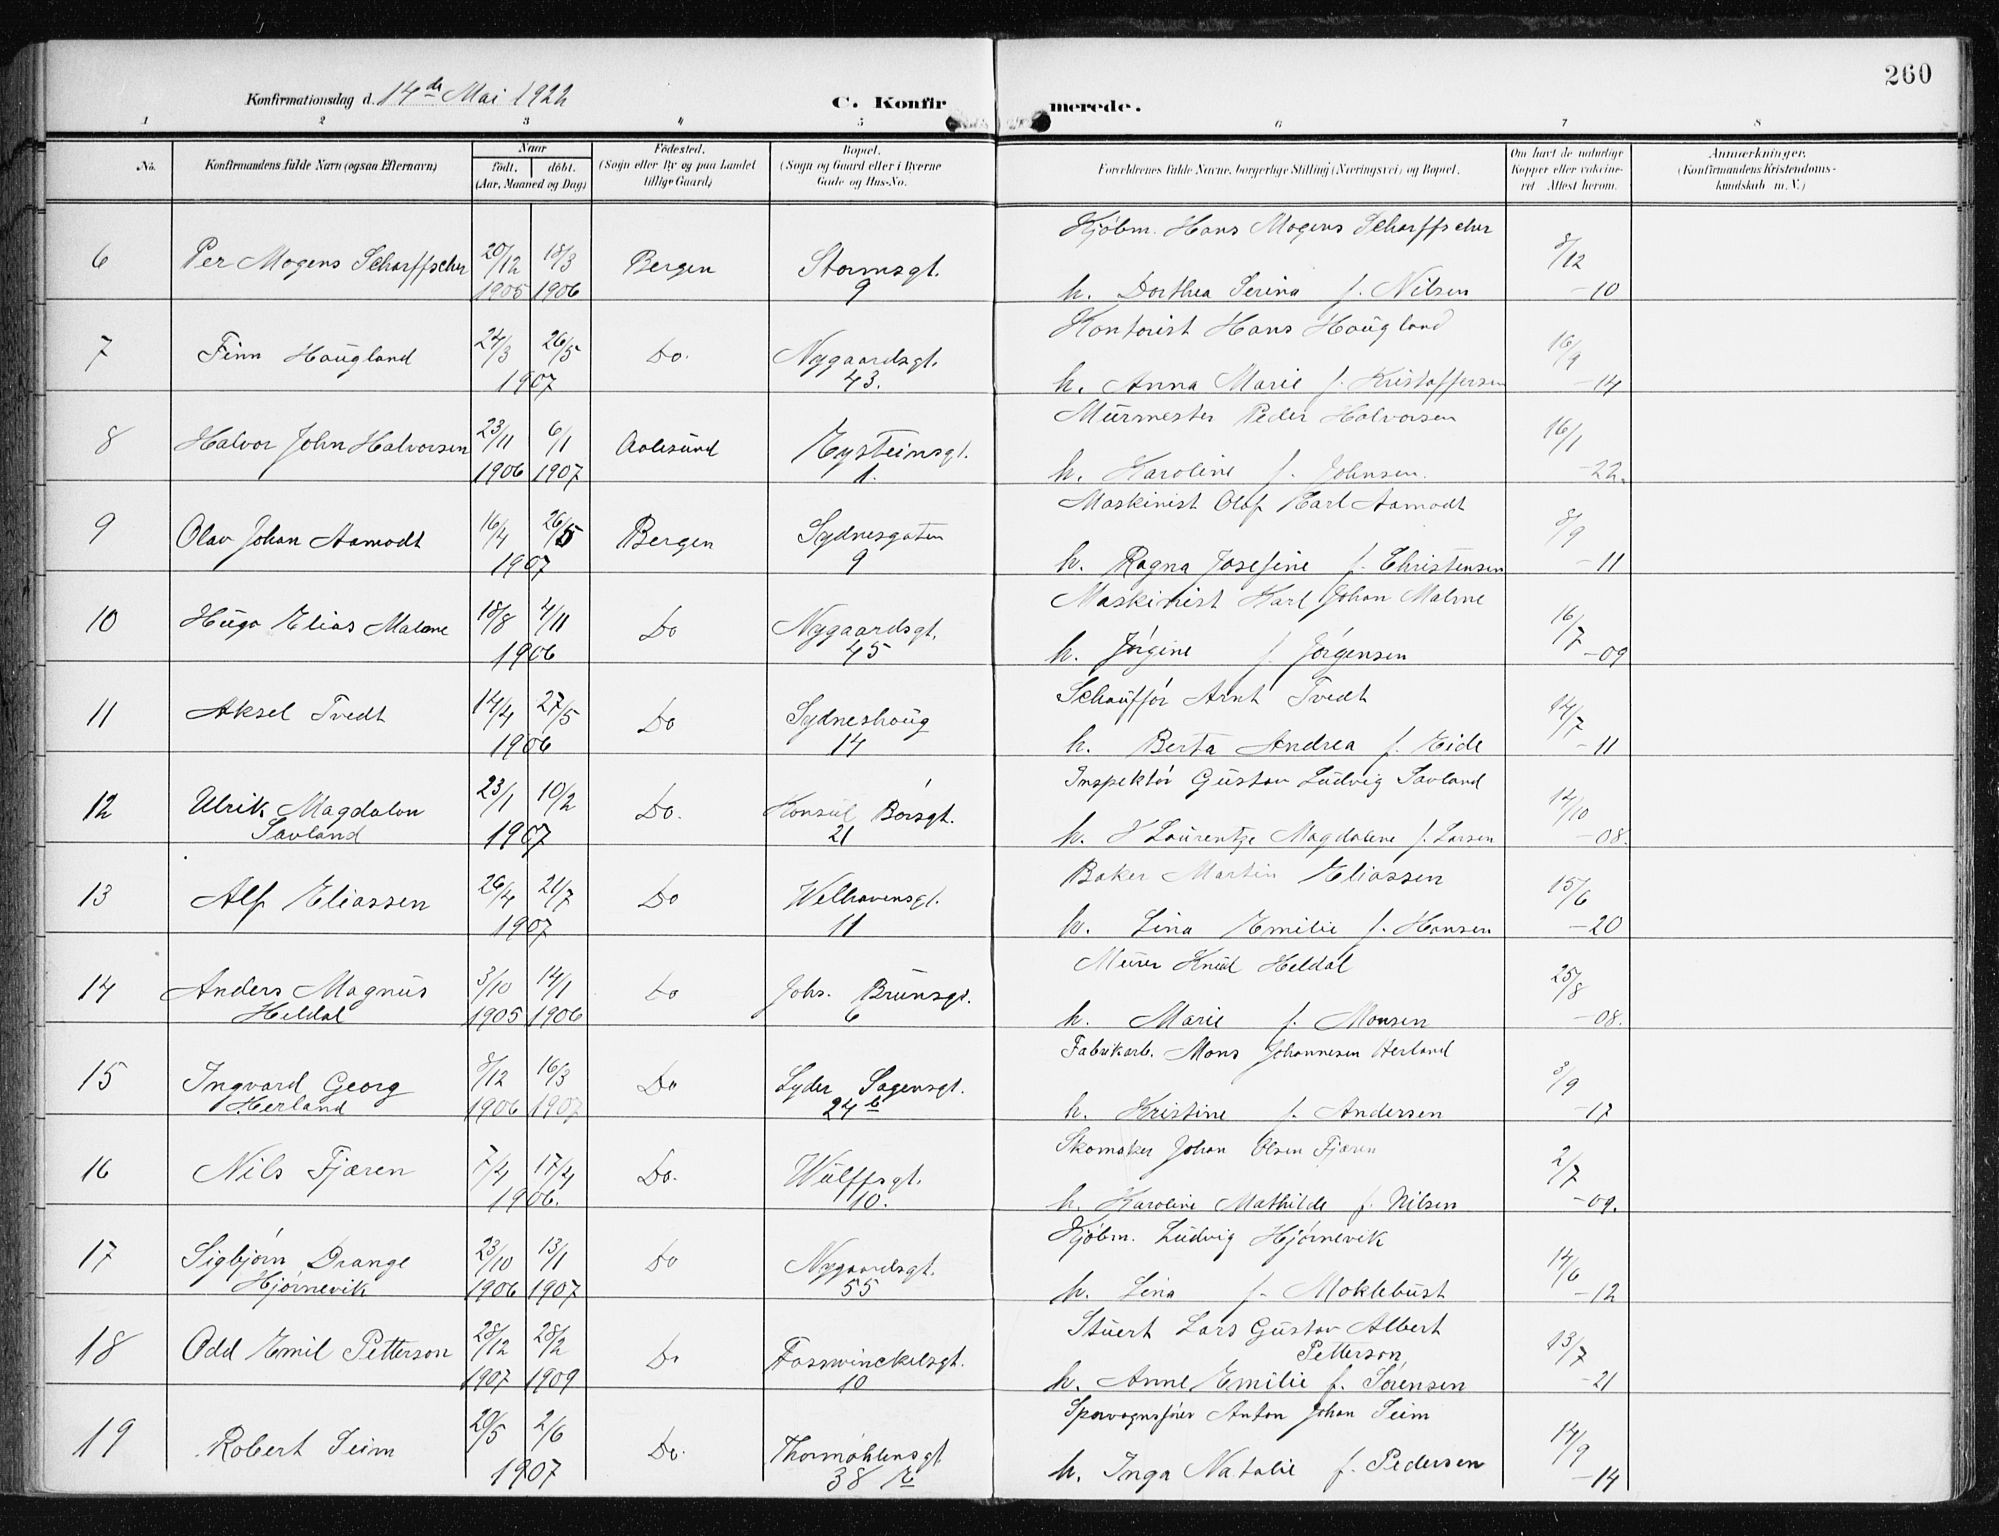 260
Konfirmationsdag d. 14de Mai 1922 C. Konfirmerede.
1 2 3 4 5 6 7 8
No. Konfirmandens fulde Navn (ogsaa Efternavn) Naar født. døbt. (Aar, Maaned og Dag) Fødested. (Sogn eller By og paa Landet tillige Gaard) Bopæl. (Sogn og Gaard eller i Byerne Gade og Hus-No. Forældrenes fulde Navne, borgerlige Stilling (Næringsvei) og Bopæl. Om havt de naturlige Kopper eller vakcineret Attest herom. Anmærkninger. (Konfirmandens Kristendomskundskab m. V.)
Kjøbm. Hans Mogens Scharffscher
6 Per Mogens Scharffscher 20/12 18/3 Bergen Stormsgt. 8/12
1905 1906 9 h. Dorthea Serina f. Nilsen -10
Kontorist Hans Haugland
7 Finn Haugland 24/3 26/5 Do. Nygaardsgt. 16/9
1907 43. h. Anna Marie f. Kristoffersen -14
Murmester Peder Halvorsen
8 Halvor John Halvorsen 23/11 6/1 Aalesund Eysteinsgt. 16/1
1906 1907 1. h. Karoline f. Johnsen. -22.
Maskinist Olaf Karl Aamodt
9 Olav Johan Aamodt 16/4 26/5 Bergen Sydnesgaten 8/9
1907 9 h. Ragna Josefine f. Christensen -11
Maskinist Karl Johan Malme
10 Hugo Elias Malme 18/8 4/11 Do Nygaardsgt. 16/7
1906 45 h. Jørgine f. Jørgensen -09
Schauffør Arnt Tvedt
11 Aksel Tvedt 14/4 27/5 Do Sydneshaug 14/7
1906 14 h. Berta Andrea f. Eide -11
Inspektør Gustav Ludvig Savland
12 Ulrik Magdalon 23/1 10/2 Do. Konsul Børsgt. 14/10
Savland 1907 21 h. Laurentze Magdalene f. Larsen -08.
Baker Martin Eliassen
13 Alf Eliassen 26/4 21/7 Do Welhavensgt. 15/6
1907 11 h. Lina Emilie f. Hansen -20
Murer Knud Heldal
14 Anders Magnus 3/10 14/1 Do Johs. Brunsgt. 25/8
Heldal 1905 1906 6 h. Marie f. Monsen -08.
Fabrikarb. Mons Johannesen Herland
15 Ingvard Georg 8/12 16/3 Do Lyder Sagensgt. 3/9
Herland 1906 1907 24 b h. Kristine f. Andersen -17
Skomaker Johan Olsen Fjæren
16 Nils Fjæren 7/4 17/4 Do. Wulffsgt. 2/7
1906. 10. h. Karoline Mathilde f. Nilsen -09.
Kjøbm. Ludvig Hjørnevik
17 Sigbjørn Drange 23/10 13/1 Do Nygaardsgt. 14/6
Hjørnevik 1906 1907 55 h. Lina f. Moklebust -12
Stuert Lars Gustav Albert
18 Odd Emil Petterson 28/12 28/2 Do Fosswinckelsgt. Petterson 13/7
1907 1909 10 h. Anne Emilie f. Sørensen -21
Sporvognsfører Anton Johan Seim
19 Robert Seim 20/5 2/6 Do. Thormøhlensgt 14/9
1907 38 h. Inga Natalie f. Pedersen -14